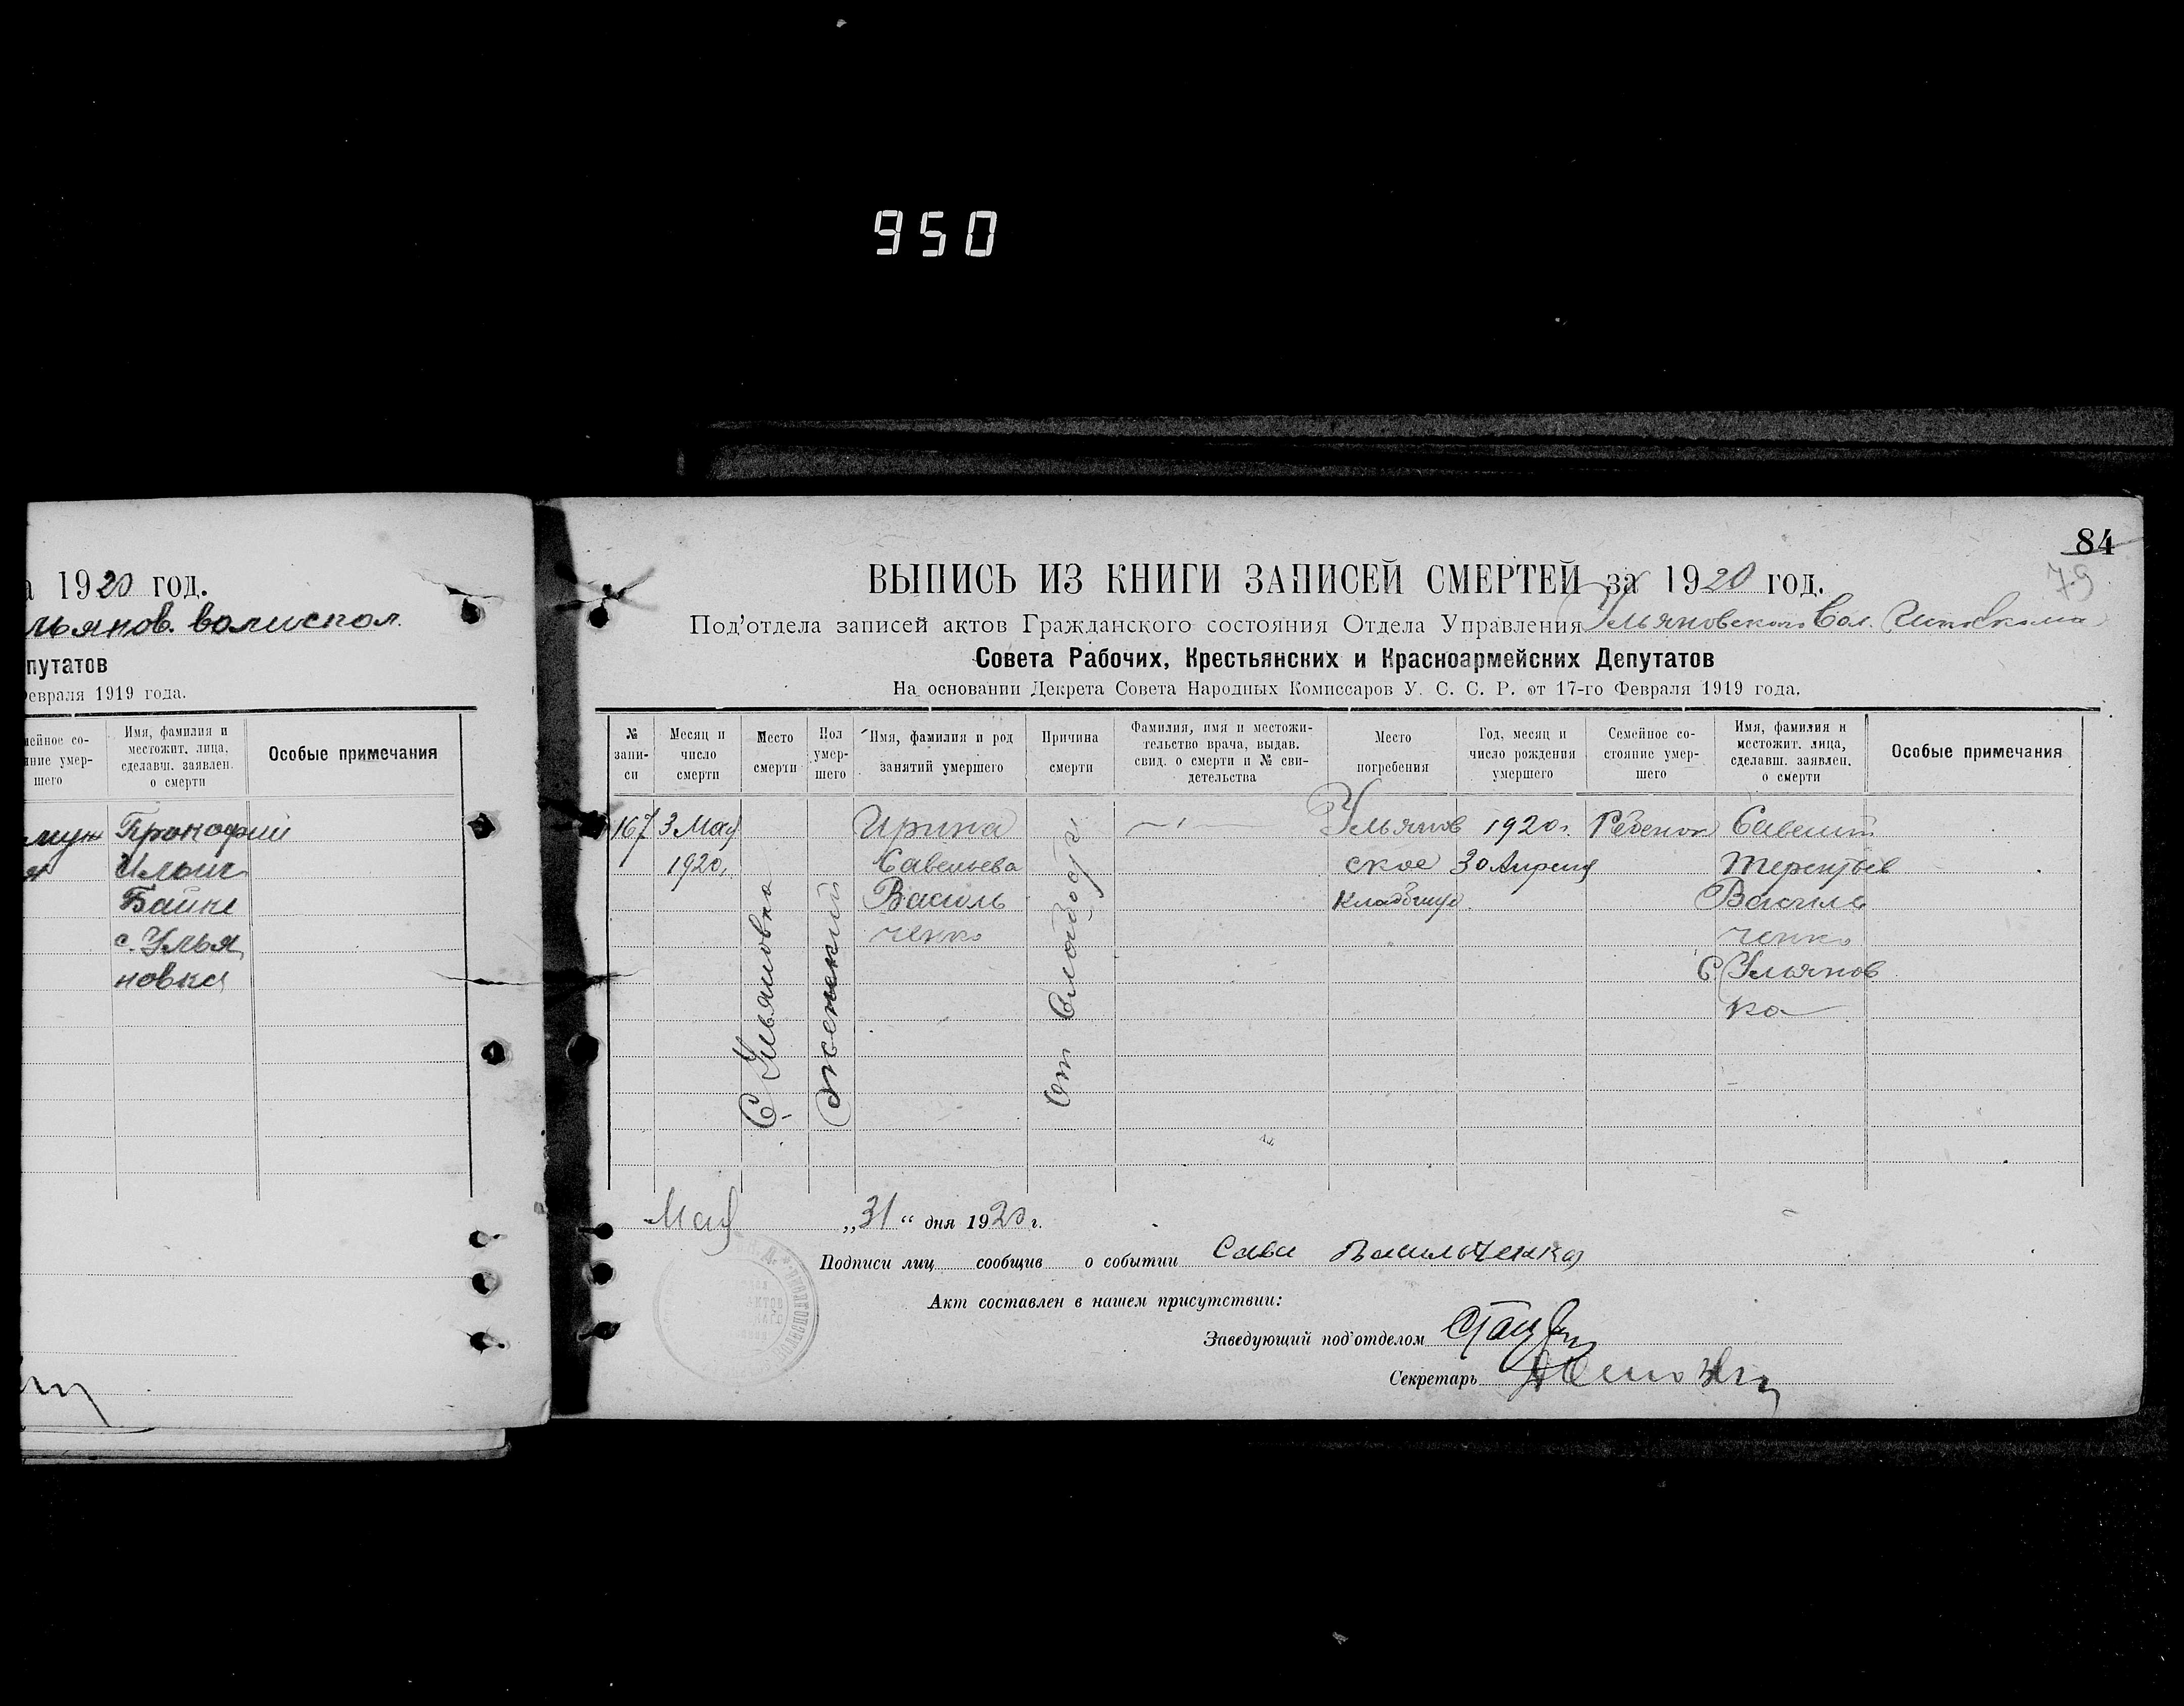 950
а 1920 год.
льянов. волиспол.
путатов
Февраля 1919 года.
мейное со-
яние умер-
шего
Имя, фамилия и
местожит. лица,
сделавш. заявлен.
о смерти
Особые примечания
муж Прокофий
я Ильич
Байке
с. Улья
новка
84
79
ВЫПИСЬ ИЗ КНИГИ ЗАПИСЕЙ СМЕРТЕЙ за 1920 год.
Под'отдела записей актов Гражданского состояния Отдела Управления Ульяновского Вол. Исполкома
Совета Рабочих, Крестьянских и Красноармейских Депутатов
На основании Декрета Совета Народных Комиссаров У. С. С. Р. от 17-го Февраля 1919 года.
№
запи-
си
Месяц и
число
смерти
Место
смерти
Пол
умер-
шего
Имя, фамилия и род
занятий умершего
Причина
смерти
Фамилия, имя и местожи-
тельство врача, выдав.
свид. о смерти и № сви-
детельства
Место
погребения
Год, месяц и
число рождения
умершего
Семейное со-
стояние умер-
шего
Имя, фамилия и
местожит. лица,
сделавш. заявлен.
о смерти
Особые примечания
167
3 Мая
1920,
С Ульяновка
Женский
Ирина
Савельева
Василь
ченко
От
Ульянов
ское
Кладбище
1920г.
30 Апреля
Ребенок
Савелий
Терентьев
Василь
ченко
С Ульянов
ка
Мая „31“ дня 1920 г.
Подписи лиц сообщив о событии Сава Васильченко
Акт составлен в нашем присутствии:
Заведующий под'отделом
Секретарь